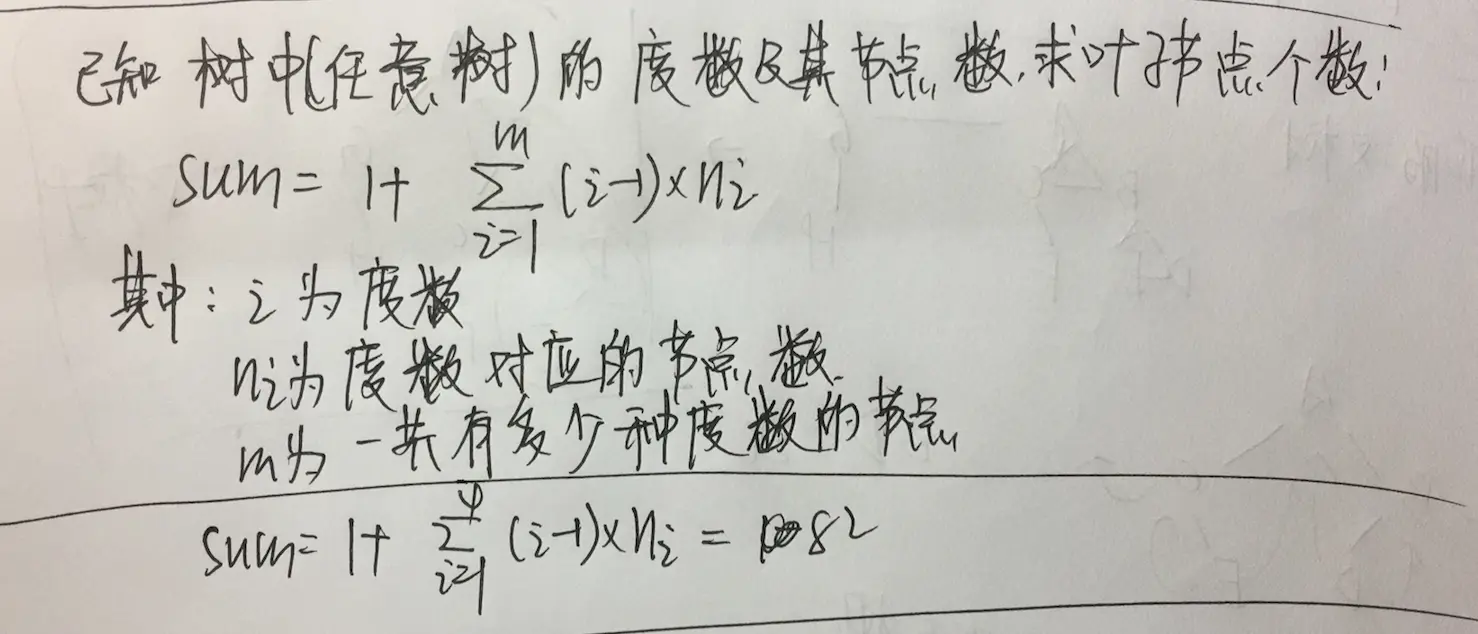 已知 树中(任意树)的 度数及其节点数,求叶子节点个数:
sum = 1+ \sum_{i=1}^{m} (i-1)×ni
其中: i 为 度数
ni为 度数 对应的 节点数.
m为 一共有多少种度数的节点
sum= 1+ \sum_{i=1}^{4} (i-1)×ni = 82